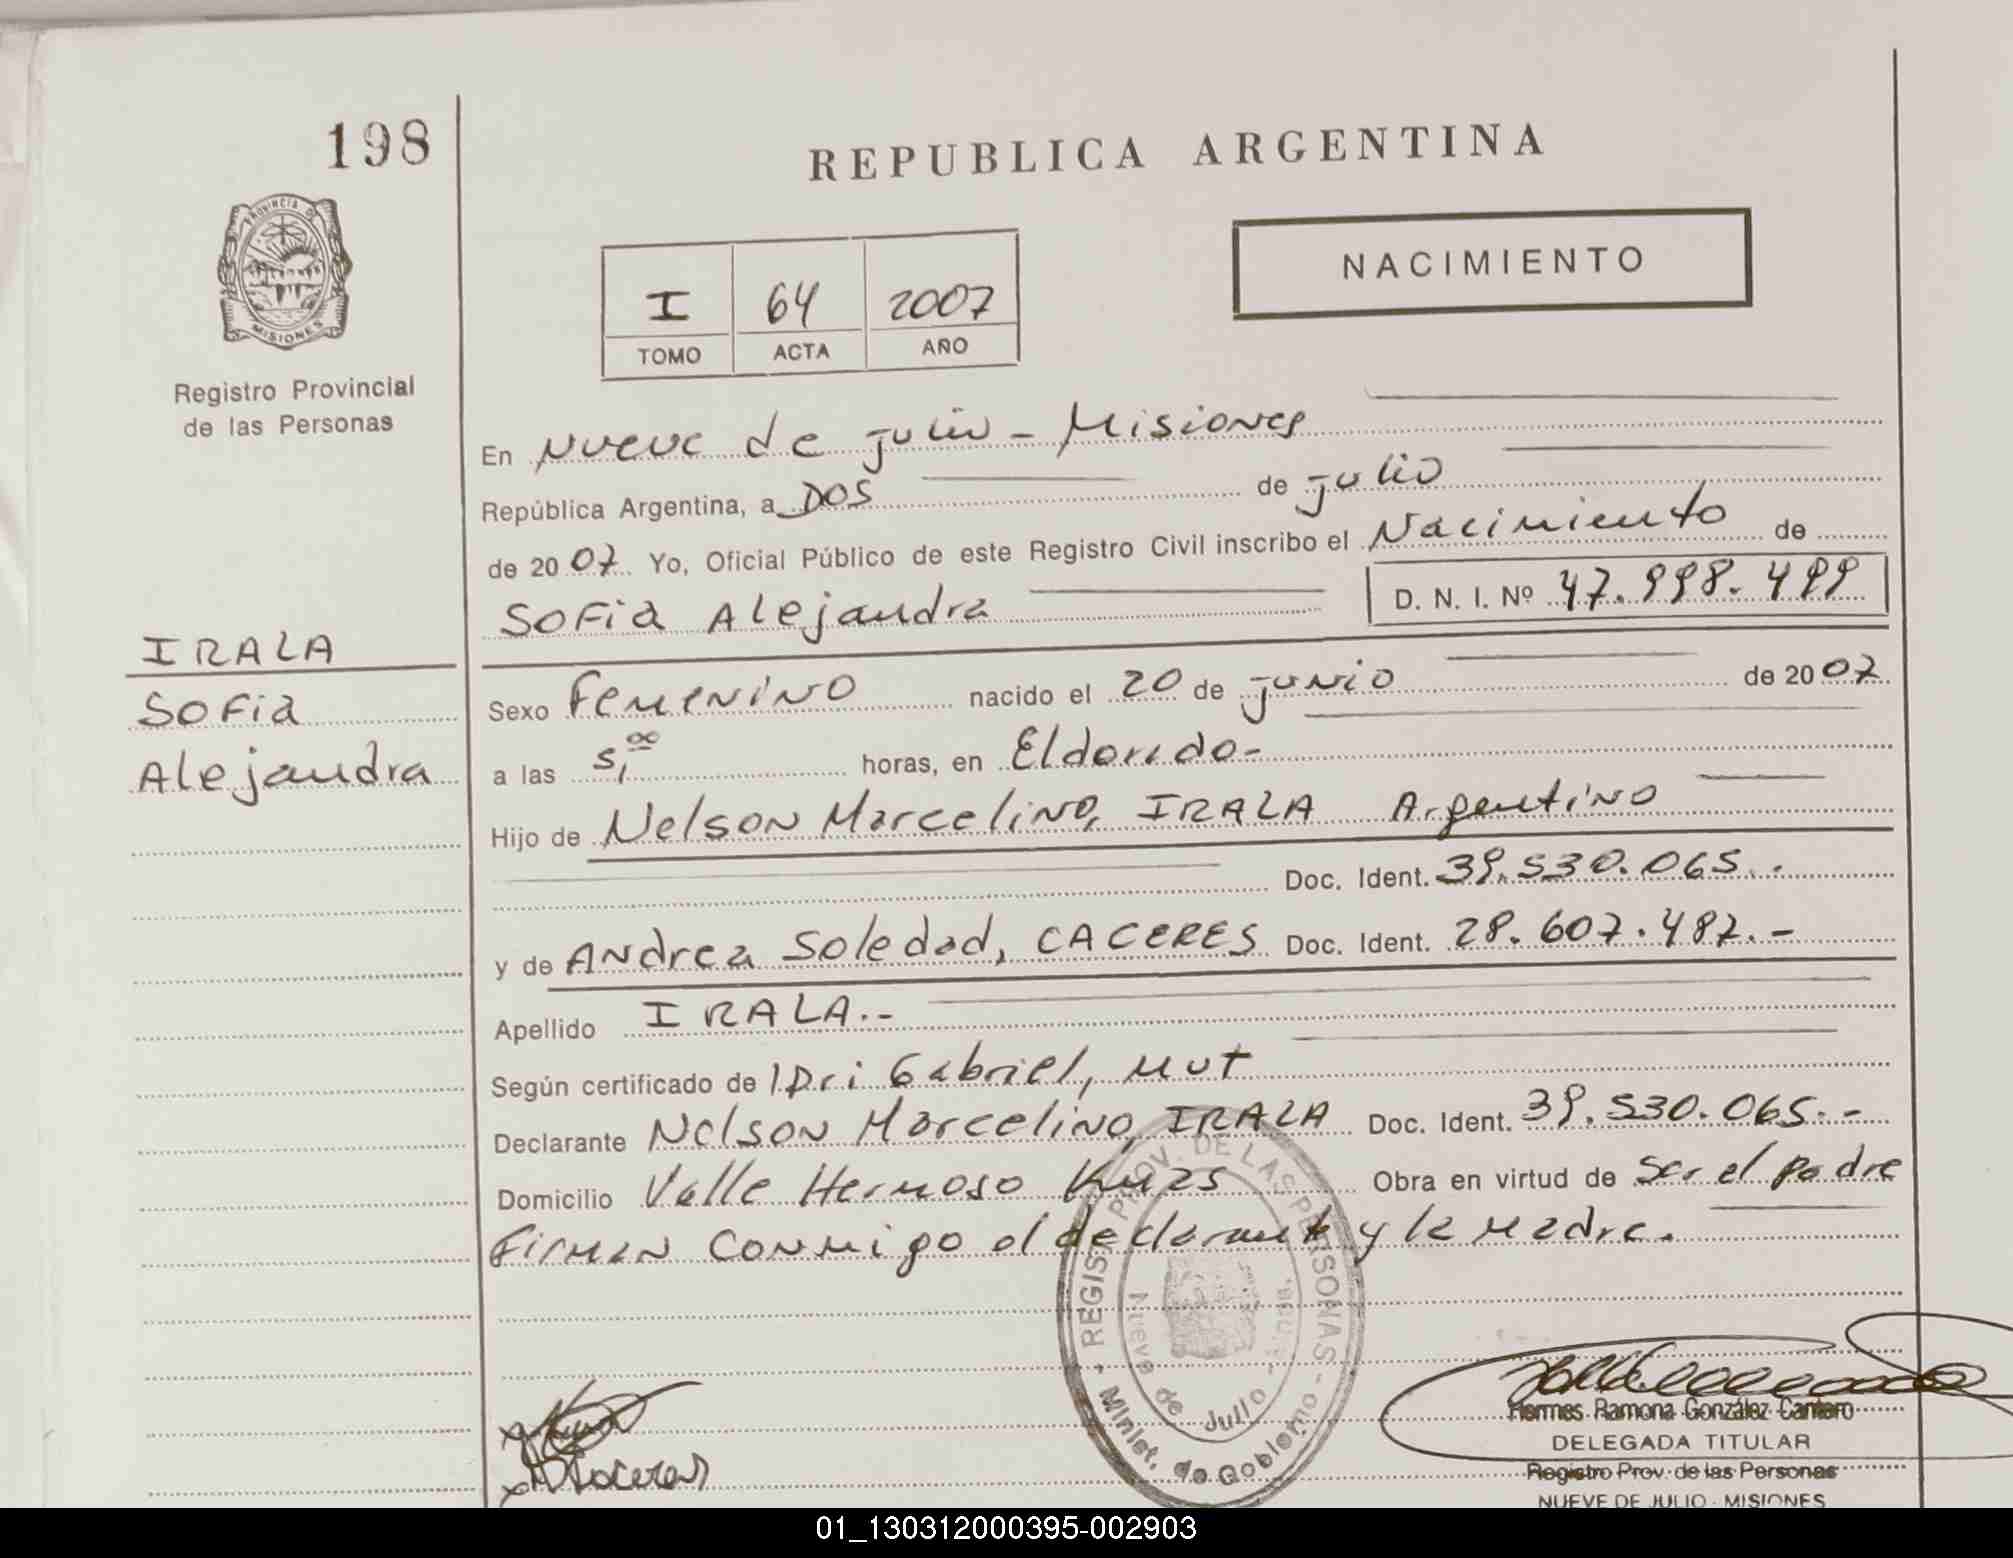 198
REPUBLICA ARGENTINA
PROVINCIA DE
MISIONES
Registro Provincial
de las Personas
NACIMIENTO
I 64 2007
TOMO ACTA AÑO
En Nueve de julio - Misiones
República Argentina, a DOS de julio
de 2007. Yo, Oficial Público de este Registro Civil inscribo el Nacimiento de
Sofia Alejandra D. N. I. Nº 47.998.499
IRALA
Sofia
Alejandra
Sexo Femenino nacido el 20 de junio de 2007
a las horas, en Eldorado-
Hijo de Nelson Marcelino, IRALA Argentino
Doc. Ident. 39.530.065.-
y de Andrea Soledad, CACERES Doc. Ident. 28.607.487.-
Apellido IRALA.-
Según certificado de Gabriel, Mut
Declarante Nelson Marcelino, IRALA Doc. Ident. 39.530.065.-
Domicilio Valle Hermoso Km 25 Obra en virtud de ser el padre
Firman conmigo el declarante y la madre.
REGIST. PROV. DE LAS PERSONAS - Minist. de Gobierno
Nueve de Julio
Caceres
Hermes Ramona González Cantero
DELEGADA TITULAR
Registro Prov. de las Personas
NUEVE DE JULIO - MISIONES
01_130312000395-002903